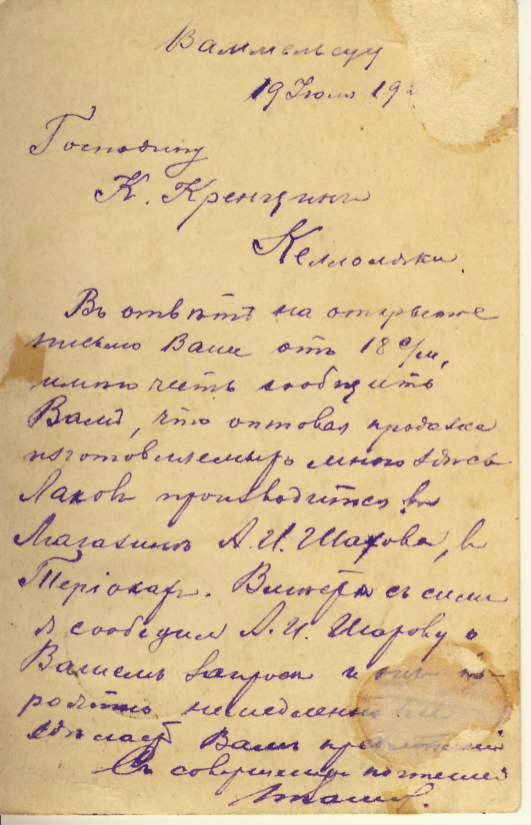 Ваммельсуу
19 Июля 19
Господину
К. Кренцину
Келломяки.
Въ отвѣтъ на открытое
письмо Ваше отъ 18 с/м,
имѣю честь сообщить
Вамъ, что оптовая продажа
изготовляемыхъ мною здѣсь
Лаковъ производится въ
Магазинѣ А. И. Шарова, въ
Терiокахъ. Вмѣстѣ съ симъ
я сообщил А. И. Шарову о
Вашемъ запросѣ и онъ вѣ-
роятно немедленно
сдѣлаетъ Вамъ
Съ совершеннымъ почтенiем